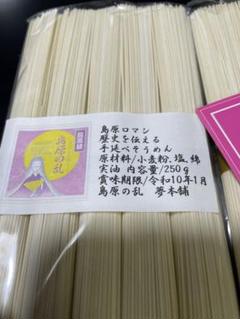 島原の乱
島原ロマン
歴史を伝える
手延べそうめん
原材料/小麦粉、塩、綿
実油 内容量/250g
賞味期限/令和10年1月
島原の乱 夢本舗